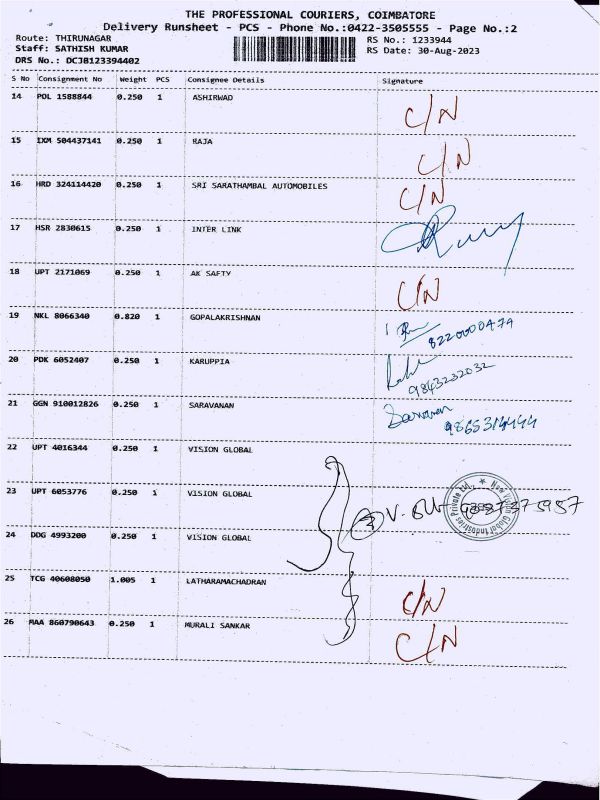 THE PROFESSIONAL COURIERS, COIMBATORE
Delivery Runsheet - PCS - Phone No.:0422-3505555 - Page No.:2
Route: THIRUNAGAR RS No.: 1233944
Staff: SATHISH KUMAR RS Date: 30-Aug-2023
DRS No.: DCJB123394402
S No Consignment No Weight PCS Consignee Details Signature
14 POL 1588844 0.250 1 ASHIRWAD C/N
15 IXM 504437141 0.250 1 RAJA C/N
16 HRD 324114420 0.250 1 SRI SARATHAMBAL AUTOMOBILES C/N
17 HSR 2830615 0.250 1 INTER LINK
18 UPT 2171069 0.250 1 AK SAFTY C/N
19 NKL 8066340 0.820 1 GOPALAKRISHNAN
8220000474
20 PDK 6052407 0.250 1 KARUPPIA
9843232032
21 GGN 910012826 0.250 1 SARAVANAN Saravanan
9865314444
22 UPT 4016344 0.250 1 VISION GLOBAL
23 UPT 6053776 0.250 1 VISION GLOBAL
24 DDG 4993200 0.250 1 VISION GLOBAL
25 TCG 40608050 1.005 1 LATHARAMACHADRAN C/N
26 MAA 860790643 0.250 1 MURALI SANKAR C/N